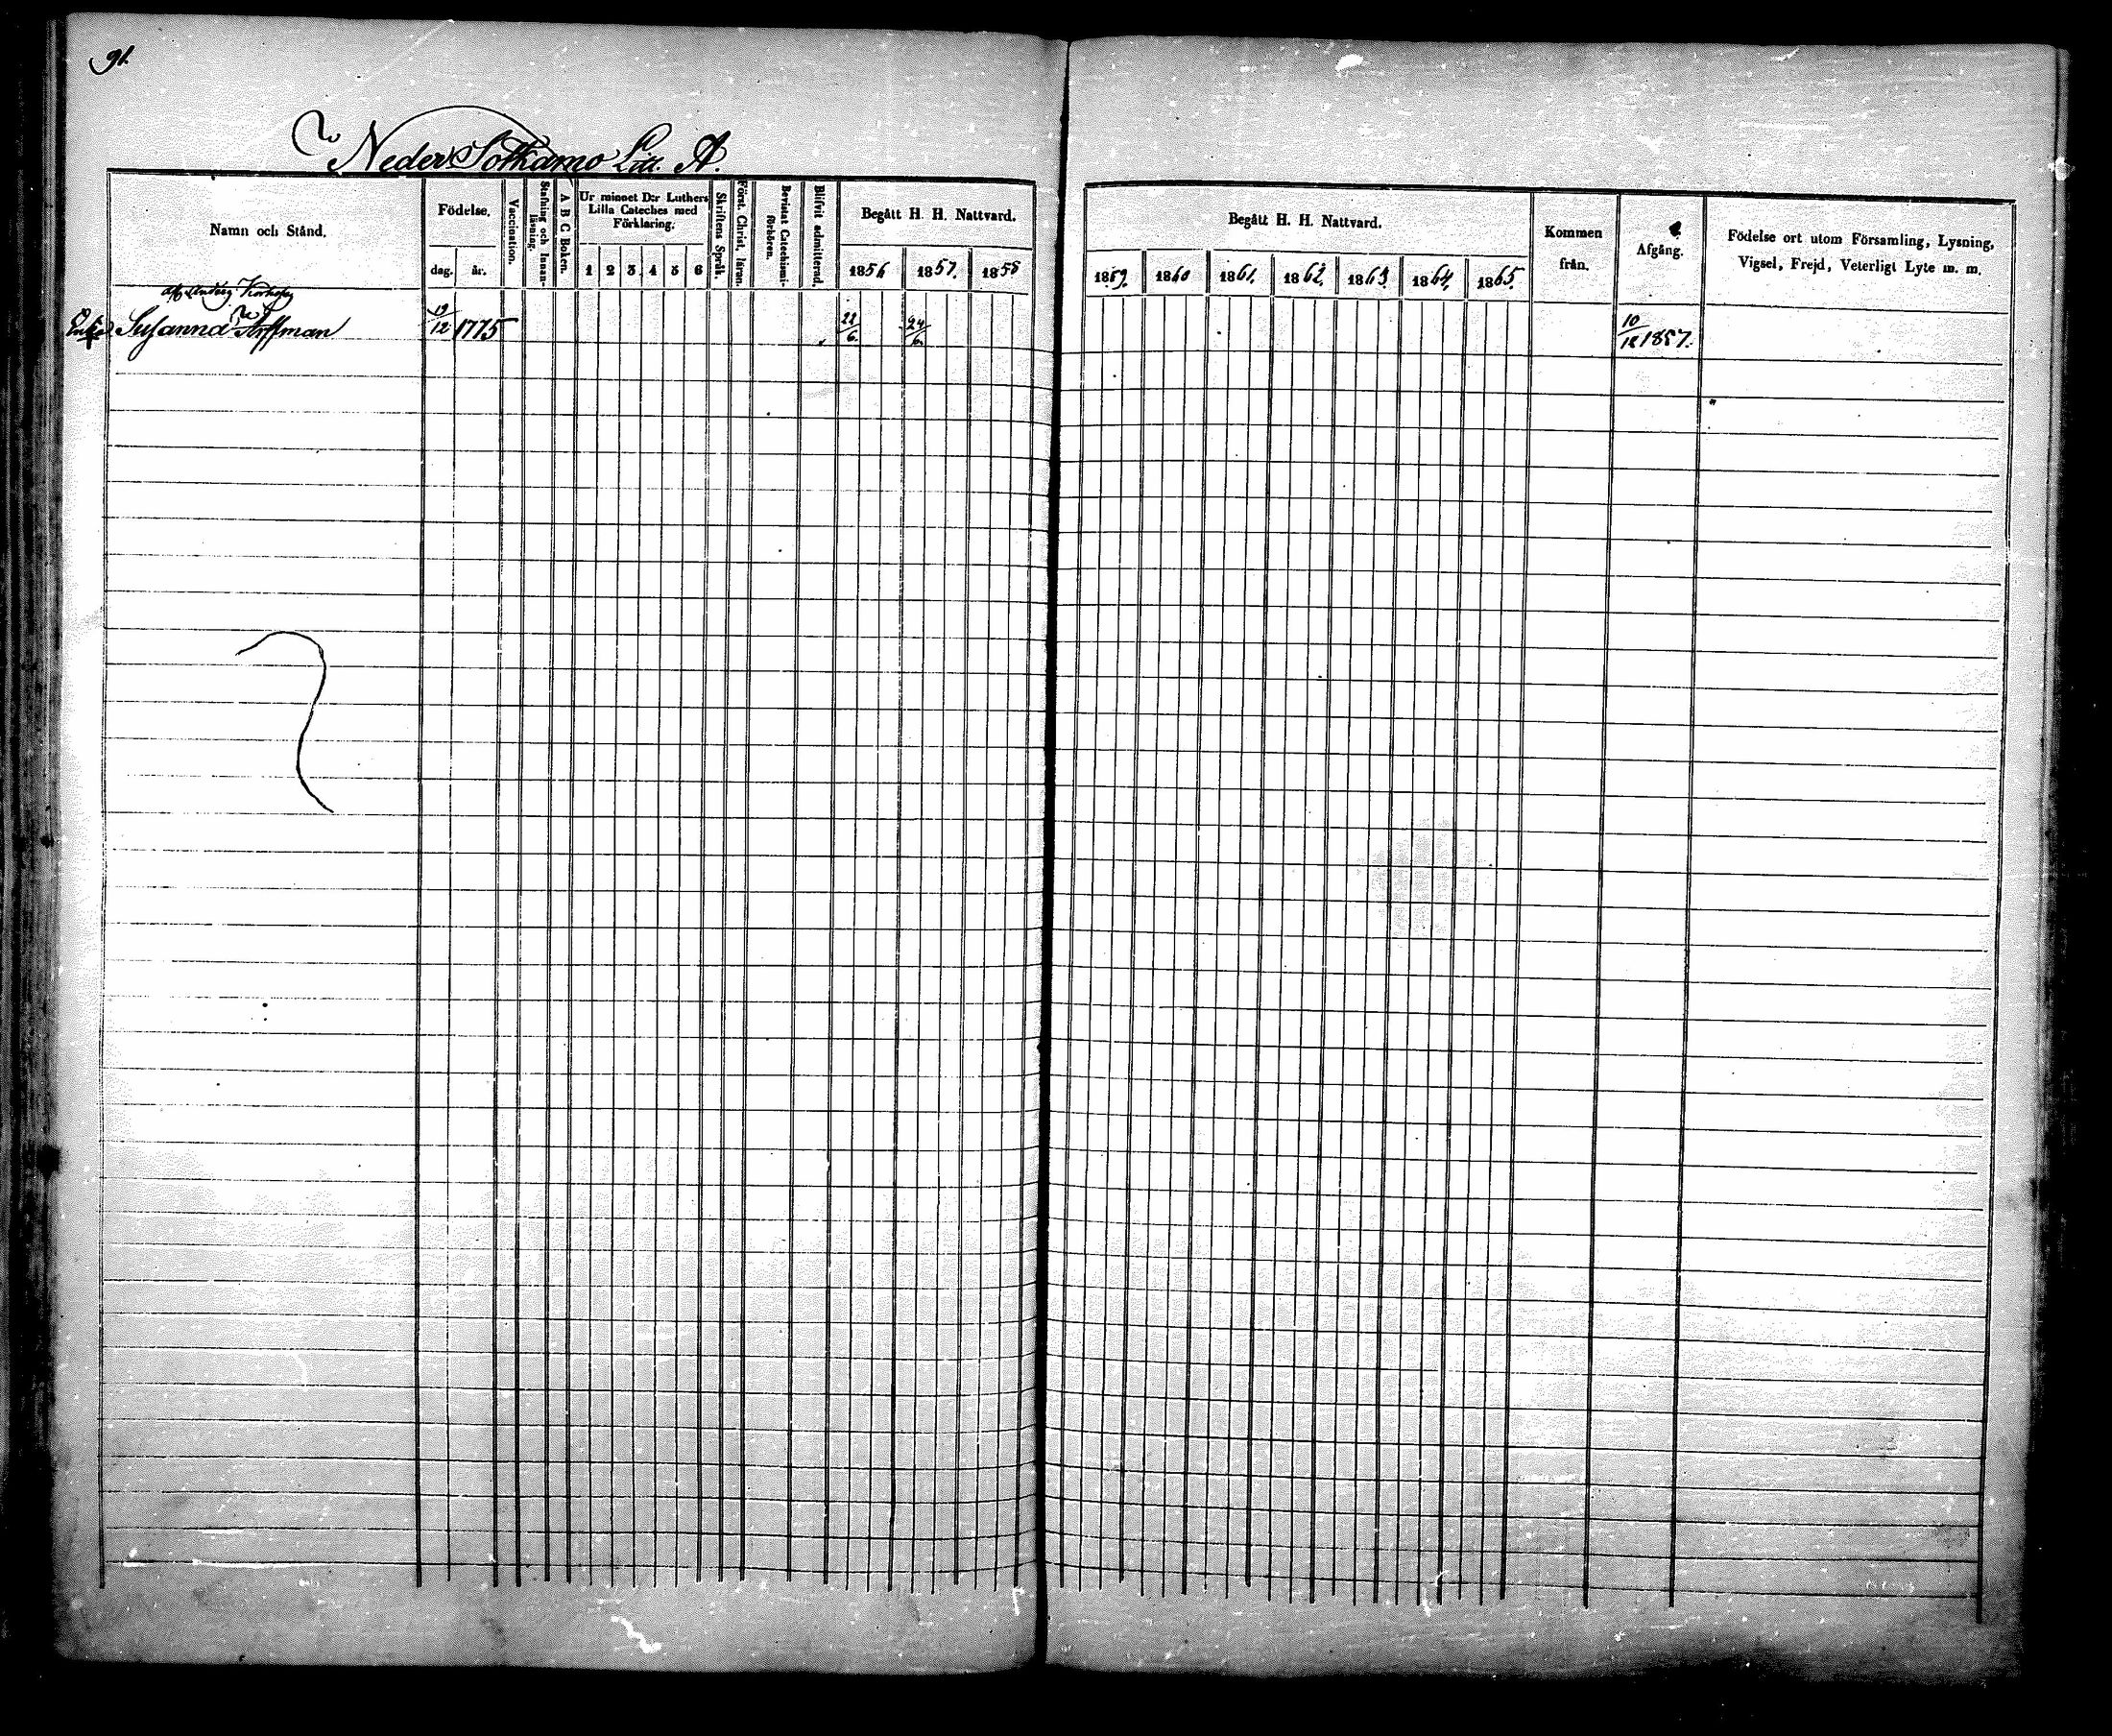 91.
Neder Sotkamo Litt. A.
Namn och Stånd.
Födelse.
dag.
år.
Vaccination.
Stafning och Innan-
läsning.
A B C Boken.
Ur minnet D:r Luthers
Lilla Cateches med
Förklaring.
1 2 3 4 5 6
Skriftens Språk.
Först. Christ. läran.
Bevistat Catechismi-
förhören.
Blifvit admitterad.
Begått H. H. Nattvard.
1856 1857. 1858
Begått H. H. Nattvard.
1859. 1860 1861. 1862. 1863. 1864. 1865.
Kommen
från.
Afgång.
Födelse ort utom Församling, Lysning,
Vigsel, Frejd, Veterligt Lyte m. m.
Enka Susanna 19/12 1775 22/6. 24/6. 10/12 1857.